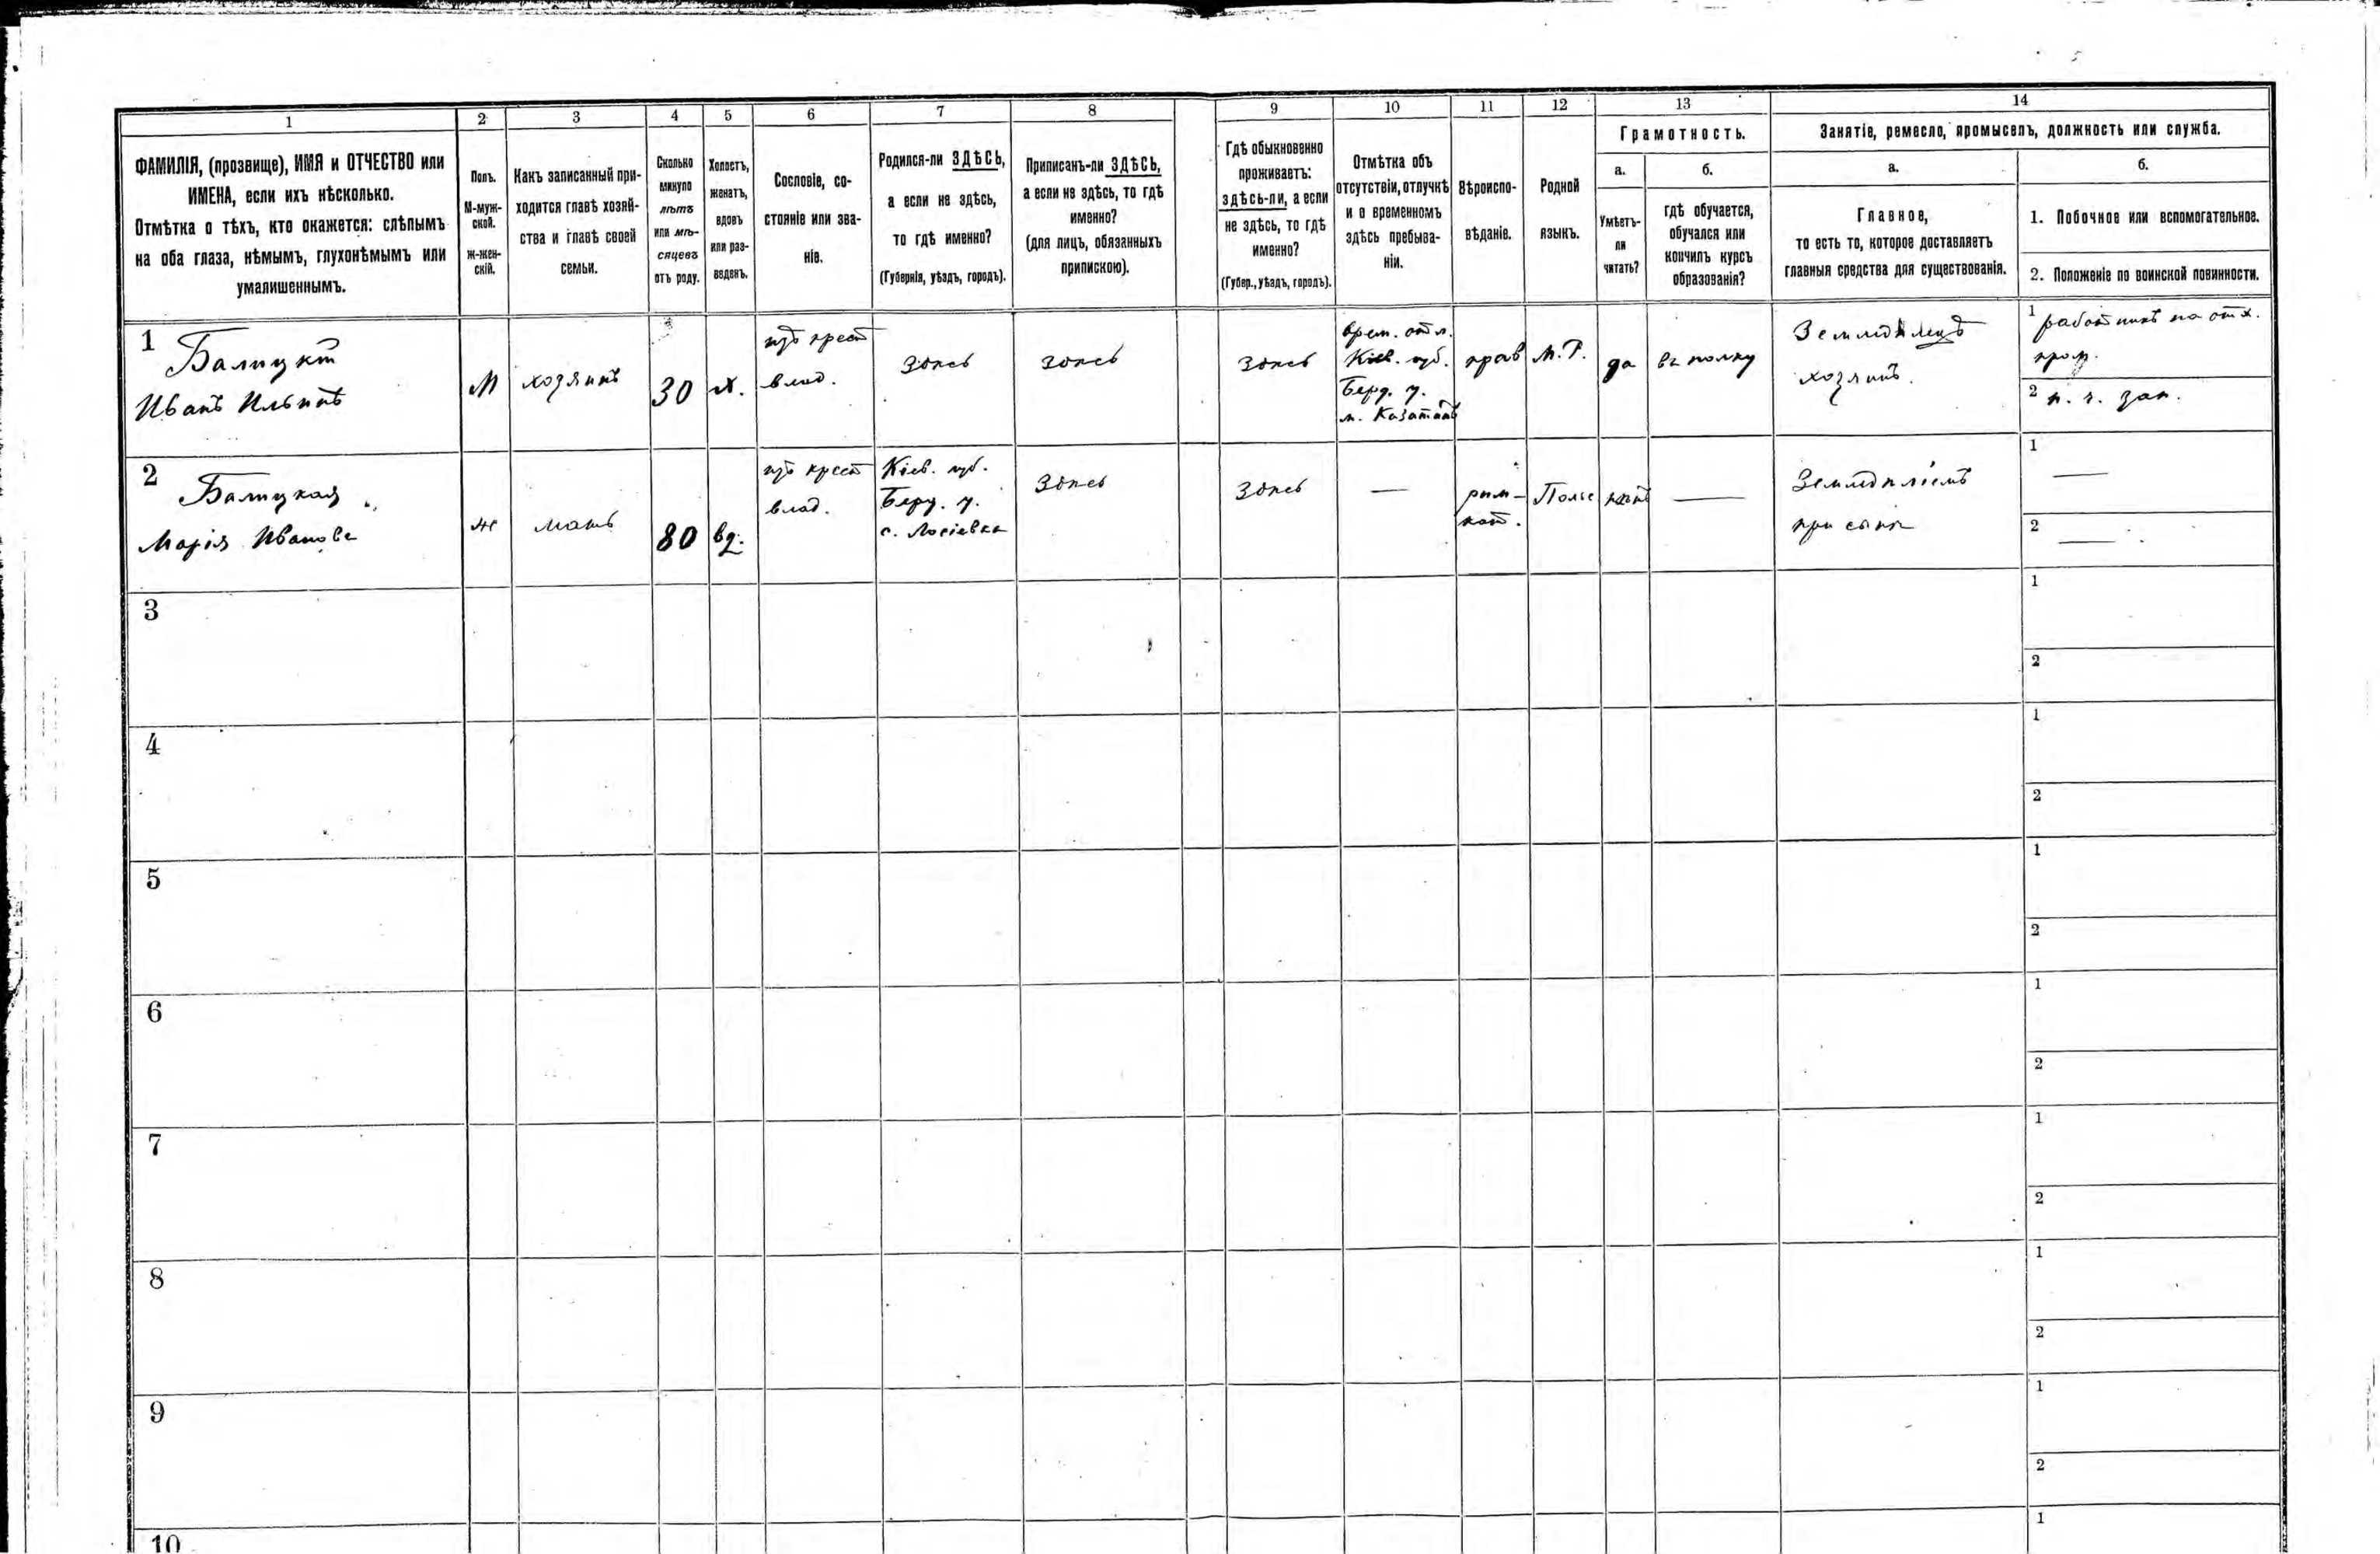 1 2 3 4 5 6 7 8 9 10 11 12 13 14
ФАМИЛІЯ, (прозвище), ИМЯ и ОТЧЕСТВО или
ИМЕНА, если ихъ нѣсколько.
Отмѣтка о тѣхъ, кто окажется: слѣпымъ
на оба глаза, нѣмымъ, глухонѣмымъ или
умалишеннымъ.
Полъ.
М-муж-
ской.
ж-жен-
скій.
Какъ записанный при-
ходится главѣ хозяй-
ства и главѣ своей
семьи.
Сколько
минуло
лѣтъ
или мѣ-
сяцевъ
отъ роду.
Холостъ,
женатъ,
вдовъ
или раз-
веденъ.
Сословіе, со-
стояніе или зва-
ніе.
Родился-ли ЗДѢСЬ,
а если не здѣсь,
то гдѣ именно?
(Губернія, уѣздъ, городъ).
Приписанъ-ли ЗДѢСЬ,
а если не здѣсь, то гдѣ
именно?
(для лицъ, обязанныхъ
припискою).
Гдѣ обыкновенно
проживаетъ:
здѣсь-ли, а если
не здѣсь, то гдѣ
именно?
(Губер., уѣздъ, городъ).
Отмѣтка объ
отсутствіи, отлучкѣ
и о временномъ
здѣсь пребыва-
ніи.
Вѣроиспо-
вѣданіе.
Родной
языкъ.
Грамотность.
а.
Умѣетъ-
ли
читать?
б.
гдѣ обучается,
обучался или
кончилъ курсъ
образованія?
Занятіе, ремесло, промыселъ, должность или служба.
а.
Главное,
то есть то, которое доставляетъ
главныя средства для существованія.
б.
1. Побочное или вспомогательное.
2. Положеніе по воинской повинности.
1
Балицкій
Иванъ Ильинъ
М
хозяинъ
30
х.
изъ крест
влад.
здѣсь
здѣсь
здѣсь
врем. отл.
Кіев. губ.
Берд. у.
м. Казатинъ
прав
М. Р.
да
въ полку
Земледѣлецъ
хозяинъ.
1 работникъ на отх.
пром.
2 н. ч. зап.
2
Балицкая
Марія Иванова
ж
мать
80
вд.
изъ крест
влад.
Кіев. губ.
Берд. у.
с. Лосіевка
здѣсь
здѣсь
—
рим-
кат.
Польс
нѣтъ
—
Земледѣліемъ
при сынѣ
1 —
2 —
3
1
2
4
1
2
5
1
2
6
1
2
7
1
2
8
1
2
9
1
2
10
1